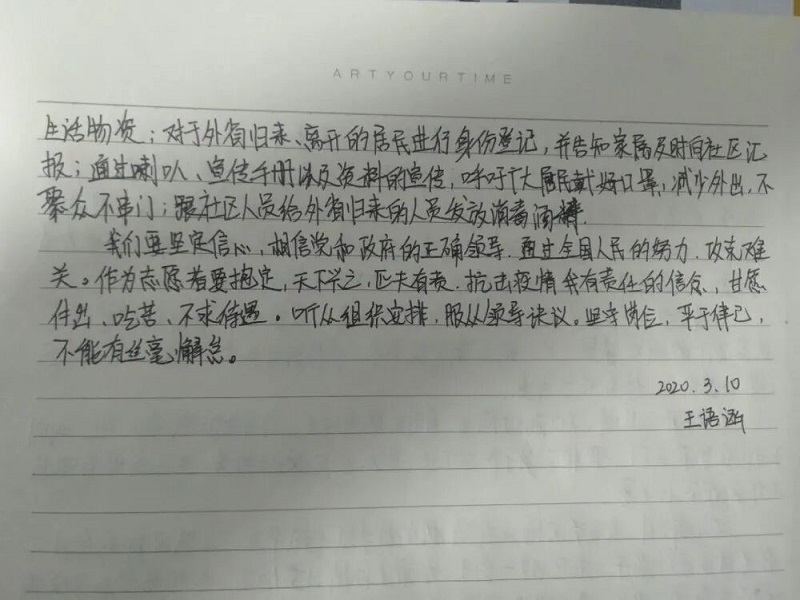 ARTYOURTIME
生活物资；对于外省归来、离开的居民进行身份登记，并告知家属及时向社区汇
报；通过喇叭、宣传手册以及资料的宣传，呼吁广大居民戴好口罩，减少外出，不
聚众不串门；跟社区人员给外省归来的人员发放消毒酒精.
我们要坚定信心，相信党和政府的正确领导.通过全国人民的努力.攻克难
关。作为志愿者要抱定，天下兴亡，匹夫有责.抗击疫情我有责任的信念，甘愿
付出、吃苦、不求待遇。听从组织安排，服从领导决议。坚守岗位，严于律己，
不能有丝毫懈怠。
2020.3.10
王语涵